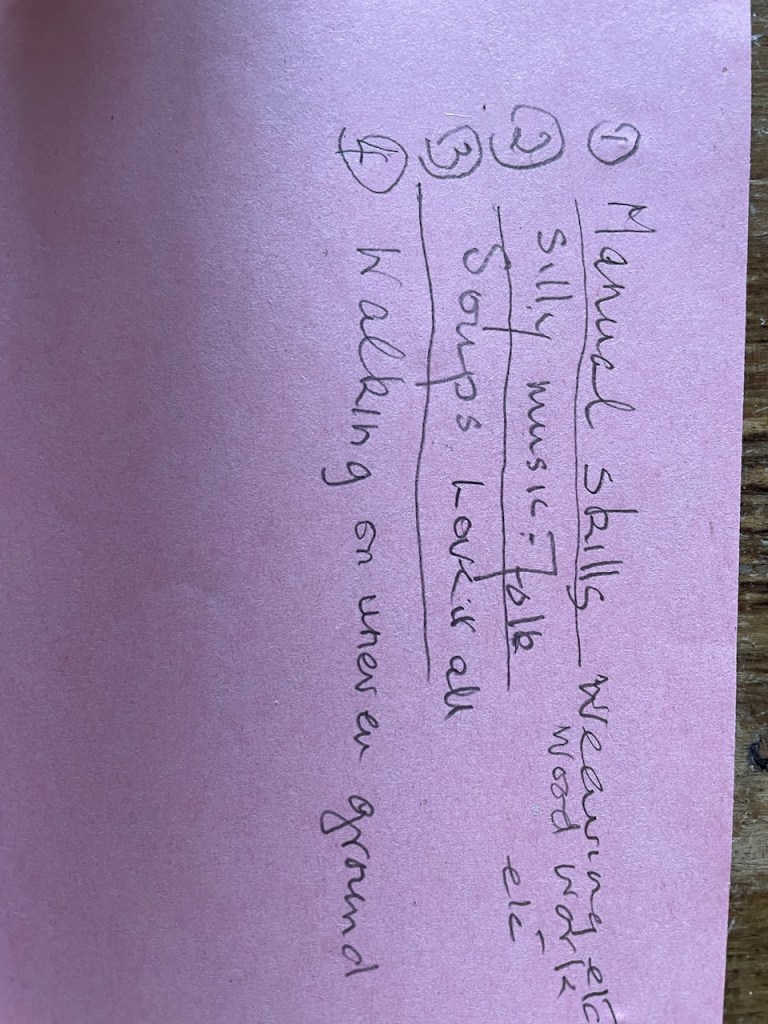 ① Manual skills weaving etc
wood work
② Silly music:- folk etc
③ Soups. Love it all
④ Walking on uneven ground